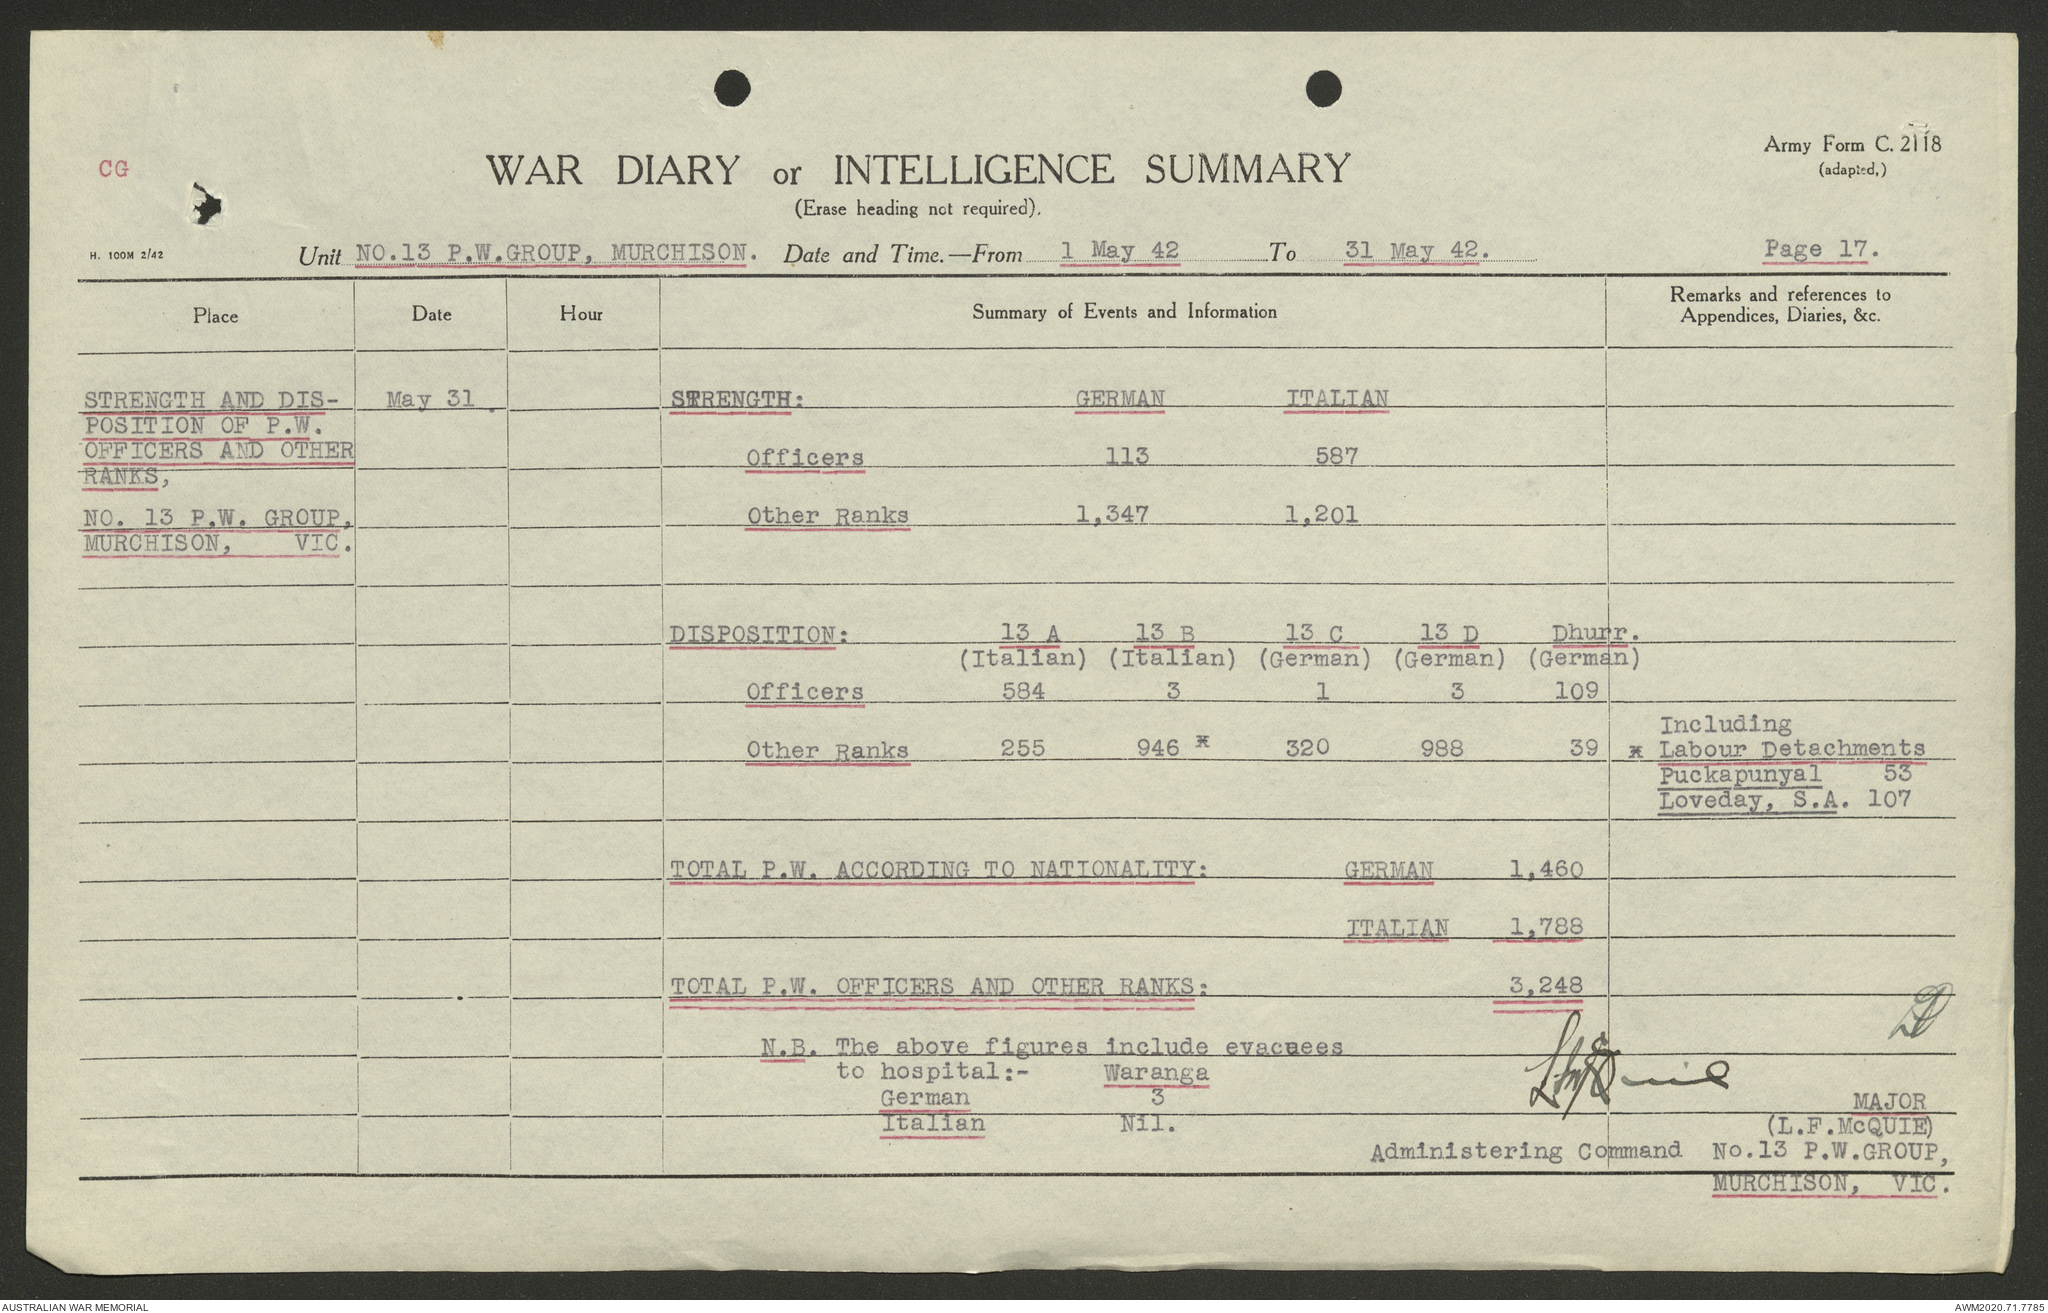 Army Form C. 2118
(adapted.)
CG
WAR DIARY or INTELLIGENCE SUMMARY
(Erase heading not required).
H. 100M 2/42
Unit NO.13 P.W.GROUP, MURCHISON. Date and Time.—From 1 May 42 To 31 May 42. Page 17.
Place Date Hour Summary of Events and Information Remarks and references to
Appendices, Diaries, &c.
STRENGTH AND DIS- May 31. STRENGTH: GERMAN ITALIAN
POSITION OF P.W.
OFFICERS AND OTHER Officers 113 587
RANKS,
NO. 13 P.W. GROUP, Other Ranks 1,347 1,201
MURCHISON, VIC.
DISPOSITION: 13 A 13 B 13 C 13 D Dhurr.
(Italian) (Italian) (German) (German) (German)
Officers 584 3 1 3 109
Including
Other Ranks 255 946 * 320 988 39 * Labour Detachments
Puckapunyal 53
Loveday, S.A. 107
TOTAL P.W. ACCORDING TO NATIONALITY: GERMAN 1,460
ITALIAN 1,788
TOTAL P.W. OFFICERS AND OTHER RANKS: 3,248
N.B. The above figures include evacuees
to hospital:- Waranga
German 3
Italian Nil.
MAJOR
(L.F.McQUIE)
Administering Command No.13 P.W.GROUP,
MURCHISON, VIC.
AUSTRALIAN WAR MEMORIAL AWM2020.71.7785